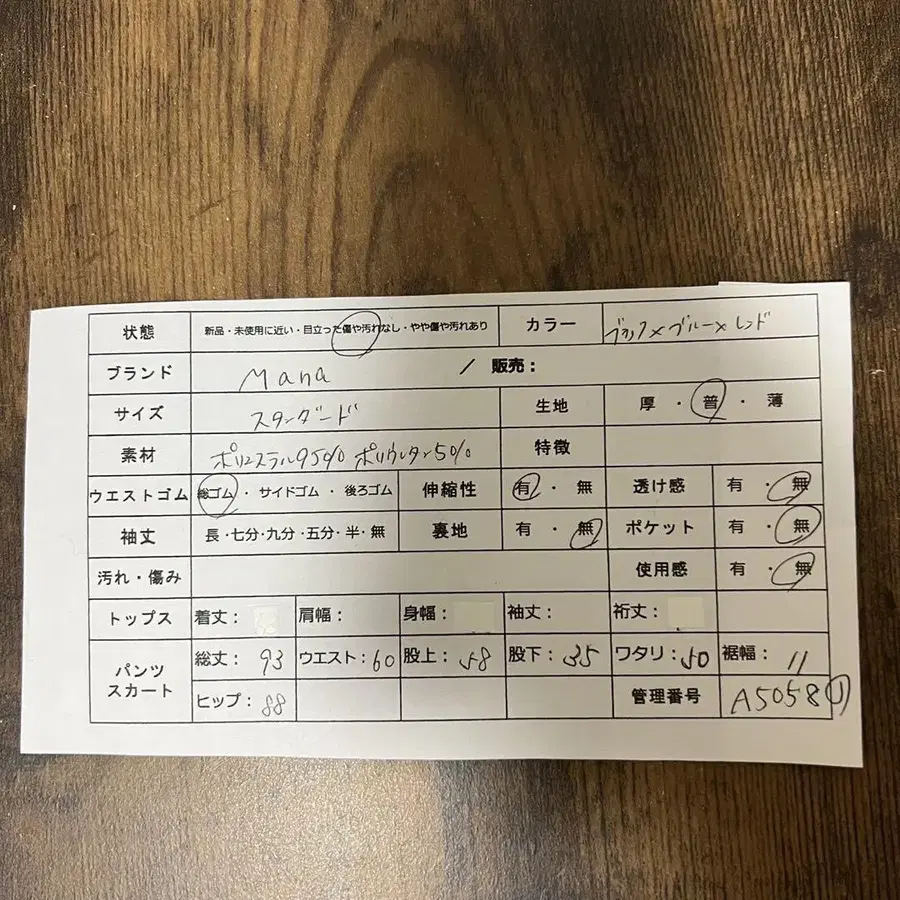 状態 新品・未使用に近い・目立った傷や汚れなし・やや傷や汚れあり カラー ブラック×ブルー×レッド
ブランド Mana / 販売：
サイズ スタンダード 生地 厚・普・薄
素材 ポリエステル95% ポリウレタン5% 特徴
ウエストゴム 総ゴム・サイドゴム・後ろゴム 伸縮性 有・無 透け感 有・無
袖丈 長・七分・九分・五分・半・無 裏地 有・無 ポケット 有・無
汚れ・傷み 使用感 有・無
トップス 着丈： 肩幅： 身幅： 袖丈： 裄丈：
パンツ スカート 総丈：93 ウエスト：60 股上：58 股下：35 ワタリ：50 裾幅：11
ヒップ：88 管理番号 A5058①